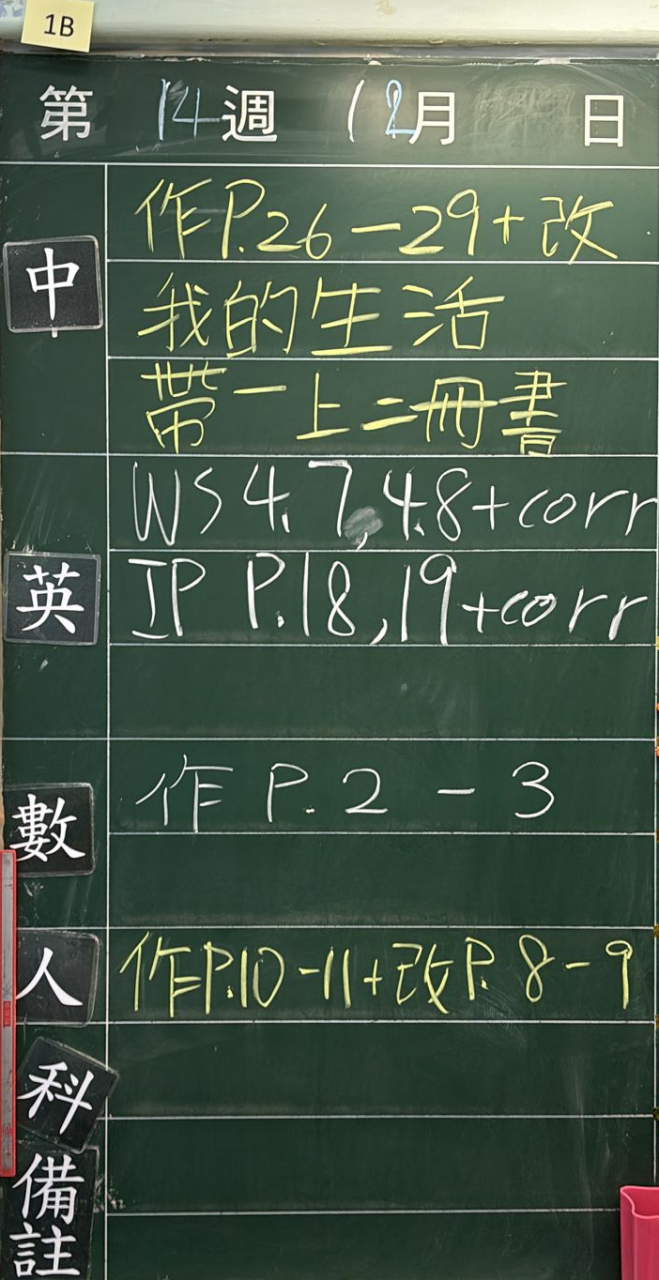 1B
第 14 週 12月 日
中
作P.26-29+改
我的生活
帶一上二冊書
英
WS 4.7, 4.8+corr
IP P.18,19+corr
數
作 P.2-3
人
作P.10-11+改P.8-9
科
備註